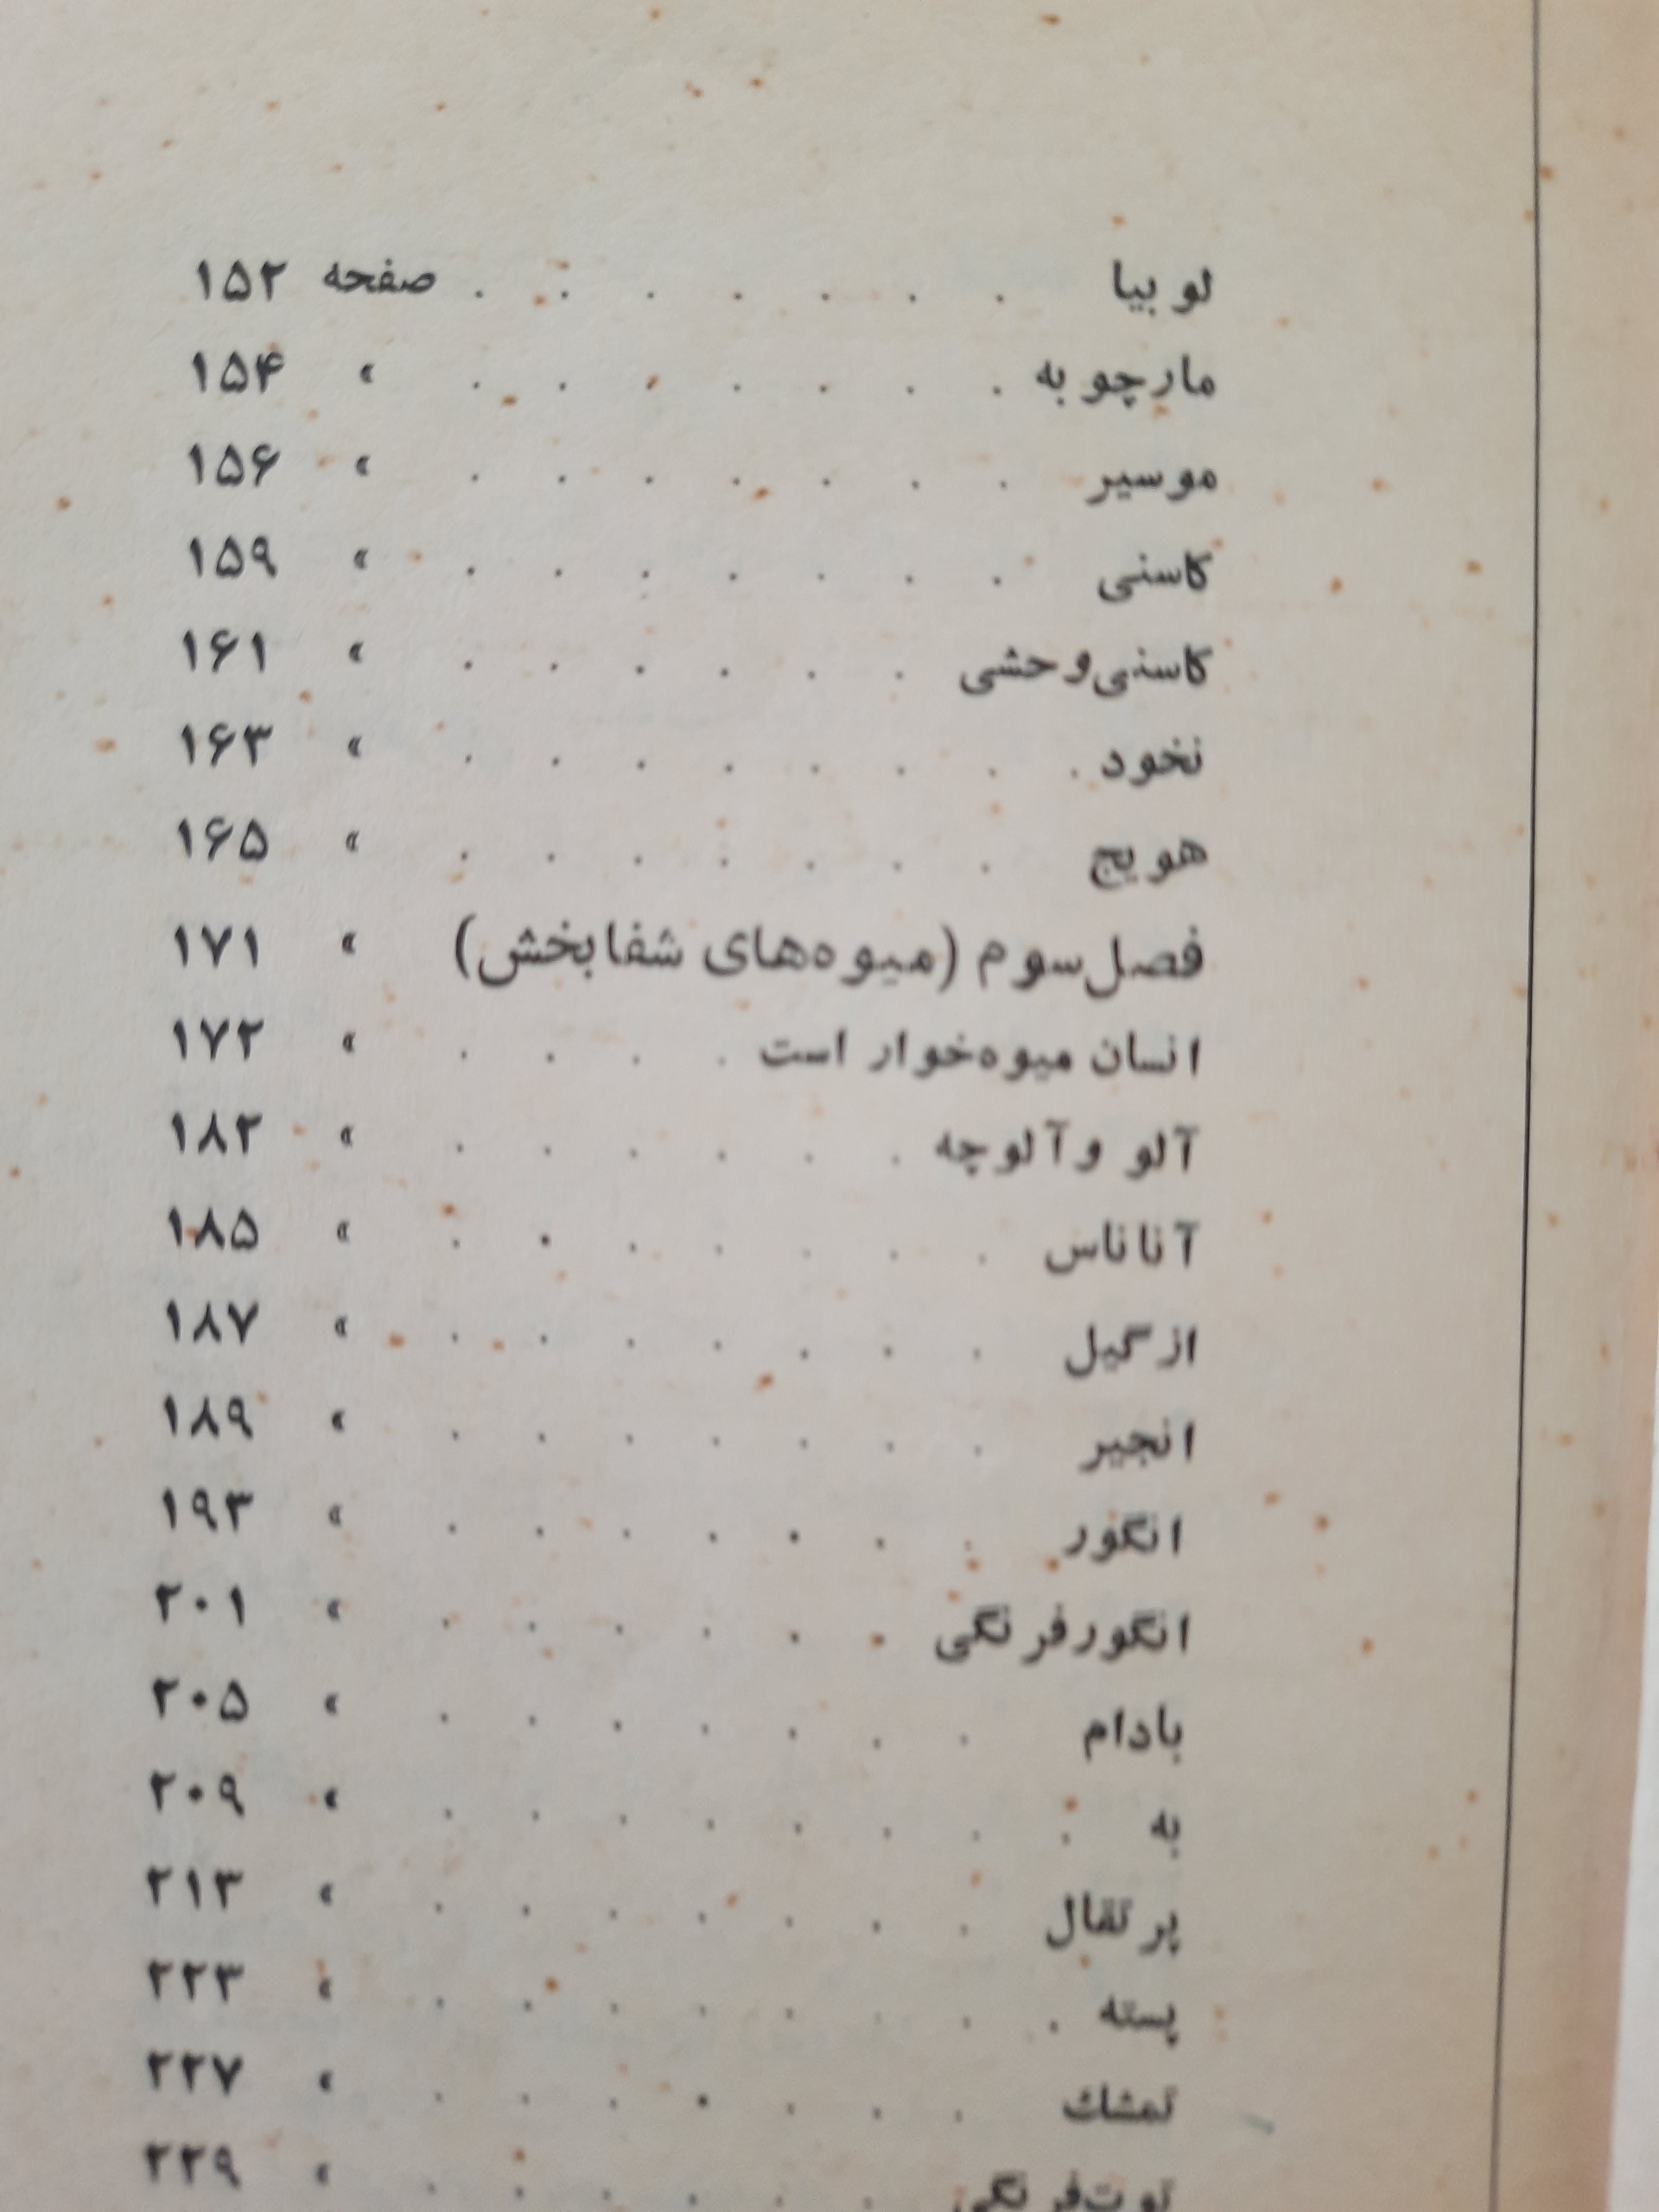 لوبیا . . . . . . . صفحه ۱۵۲
مارچوبه . . . . . . . » ۱۵۴
موسیر . . . . . . . » ۱۵۶
کاسنی . . . . . . . » ۱۵۹
کاسنی‌وحشی . . . . . . » ۱۶۱
نخود . . . . . . . . » ۱۶۳
هویج . . . . . . . » ۱۶۵
فصل‌سوم (میوه‌های شفابخش) » ۱۷۱
انسان میوه‌خوار است . . . . » ۱۷۲
آلو وآلوچه . . . . . . » ۱۸۲
آناناس . . . . . . . » ۱۸۵
ازگیل . . . . . . . » ۱۸۷
انجیر . . . . . . . » ۱۸۹
انگور . . . . . . . » ۱۹۳
انگورفرنگی . . . . . . » ۲۰۱
بادام . . . . . . . » ۲۰۵
به . . . . . . . . » ۲۰۹
پرتقال . . . . . . . » ۲۱۳
پسته . . . . . . . . » ۲۲۳
تمشك . . . . . . . » ۲۲۷
توت‌فرنگی . . . . . . » ۲۲۹